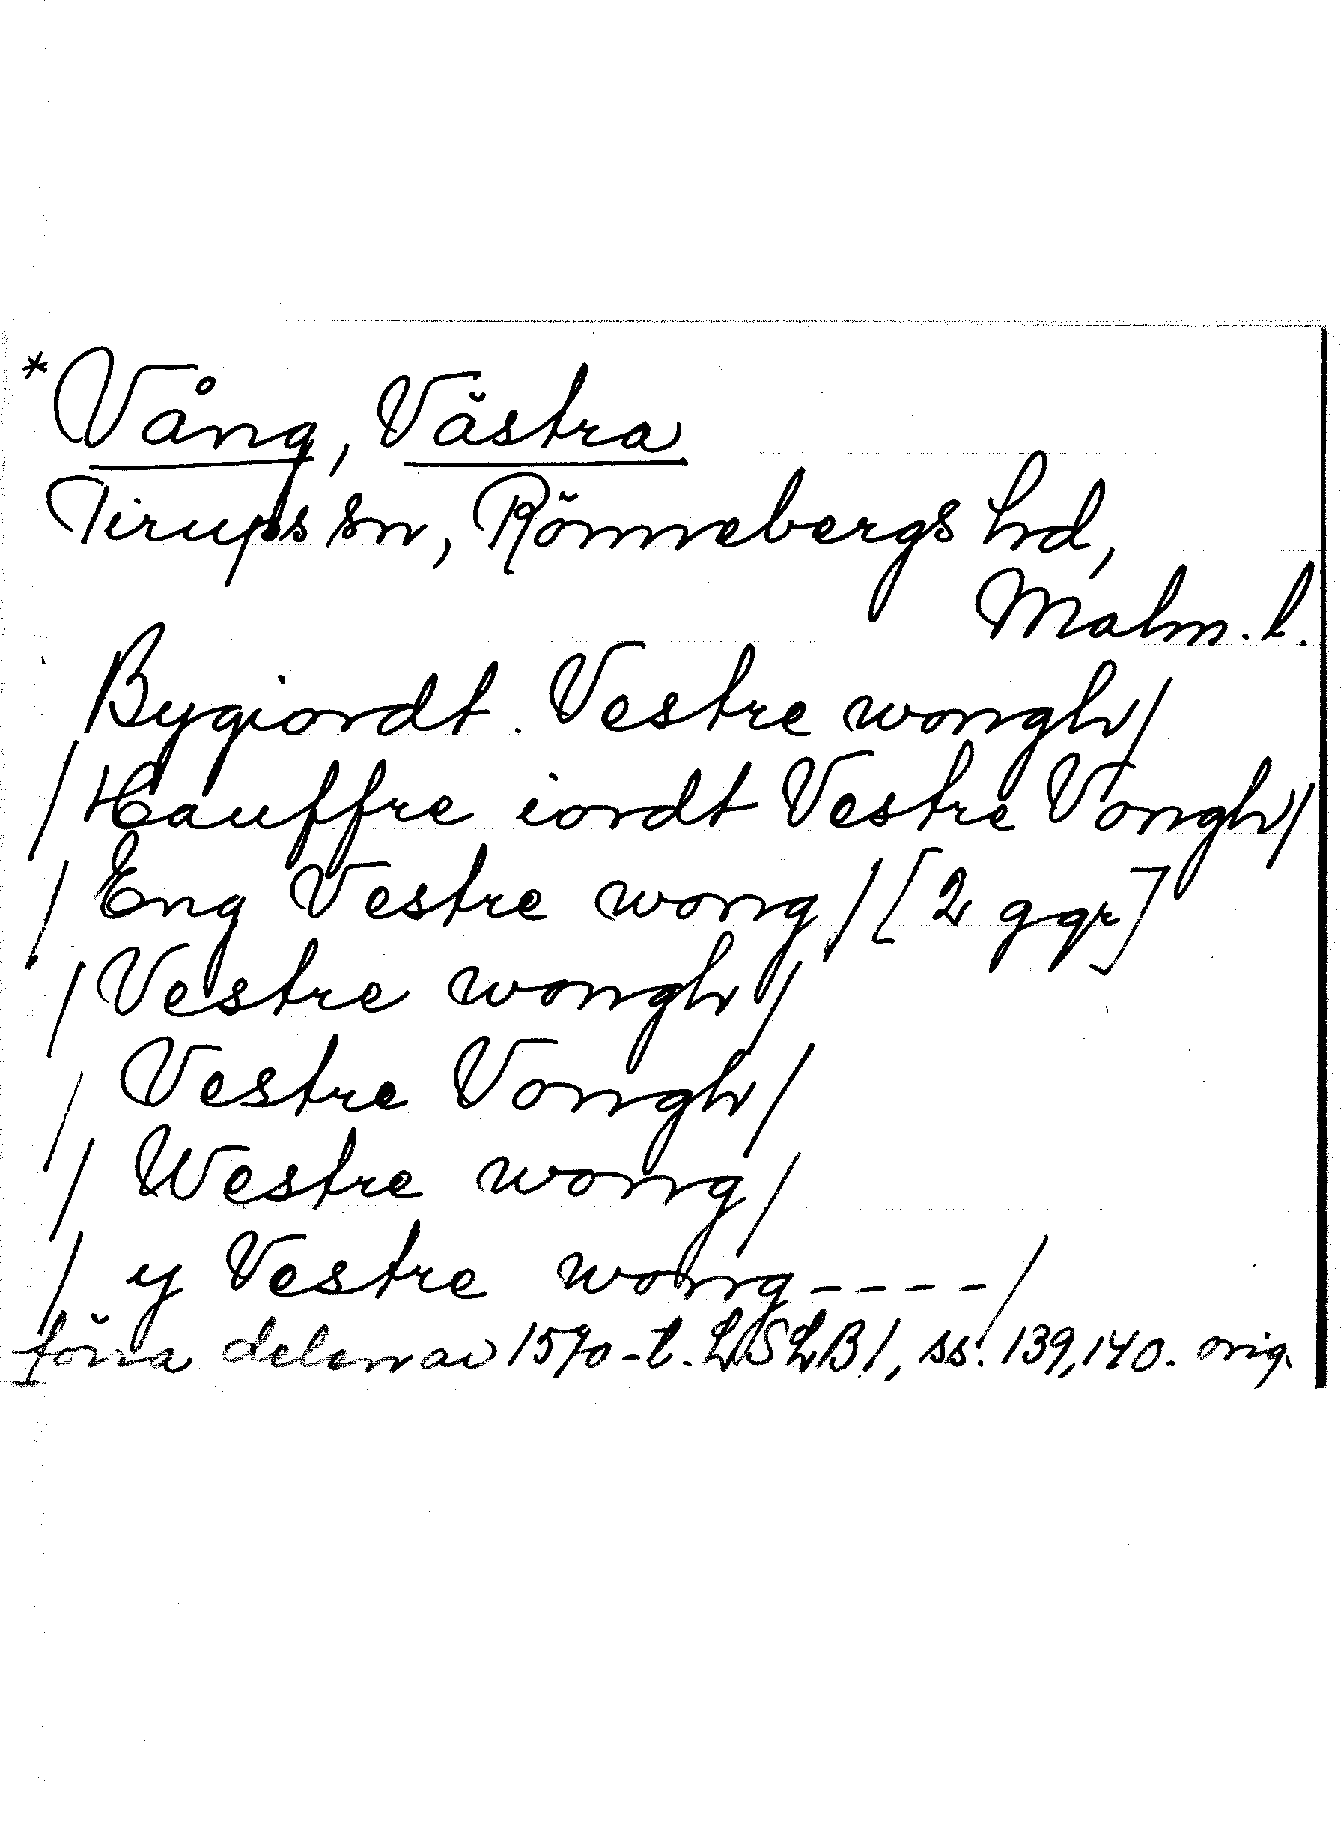 *Vång, Västra
Tirups sn, Rönnebergs hd,
Malm. l.
Bygiordt. Vestre wongh/
/Hauffre iordt Vestre Vongh/
/Eng Vestre wong/[2 ggr]
/Vestre wongh/
/Vestre Vongh/
/Westre wong/
/y Vestre wong----/
förra delen av 1570-t. LSLB1, ss. 139,140. orig.